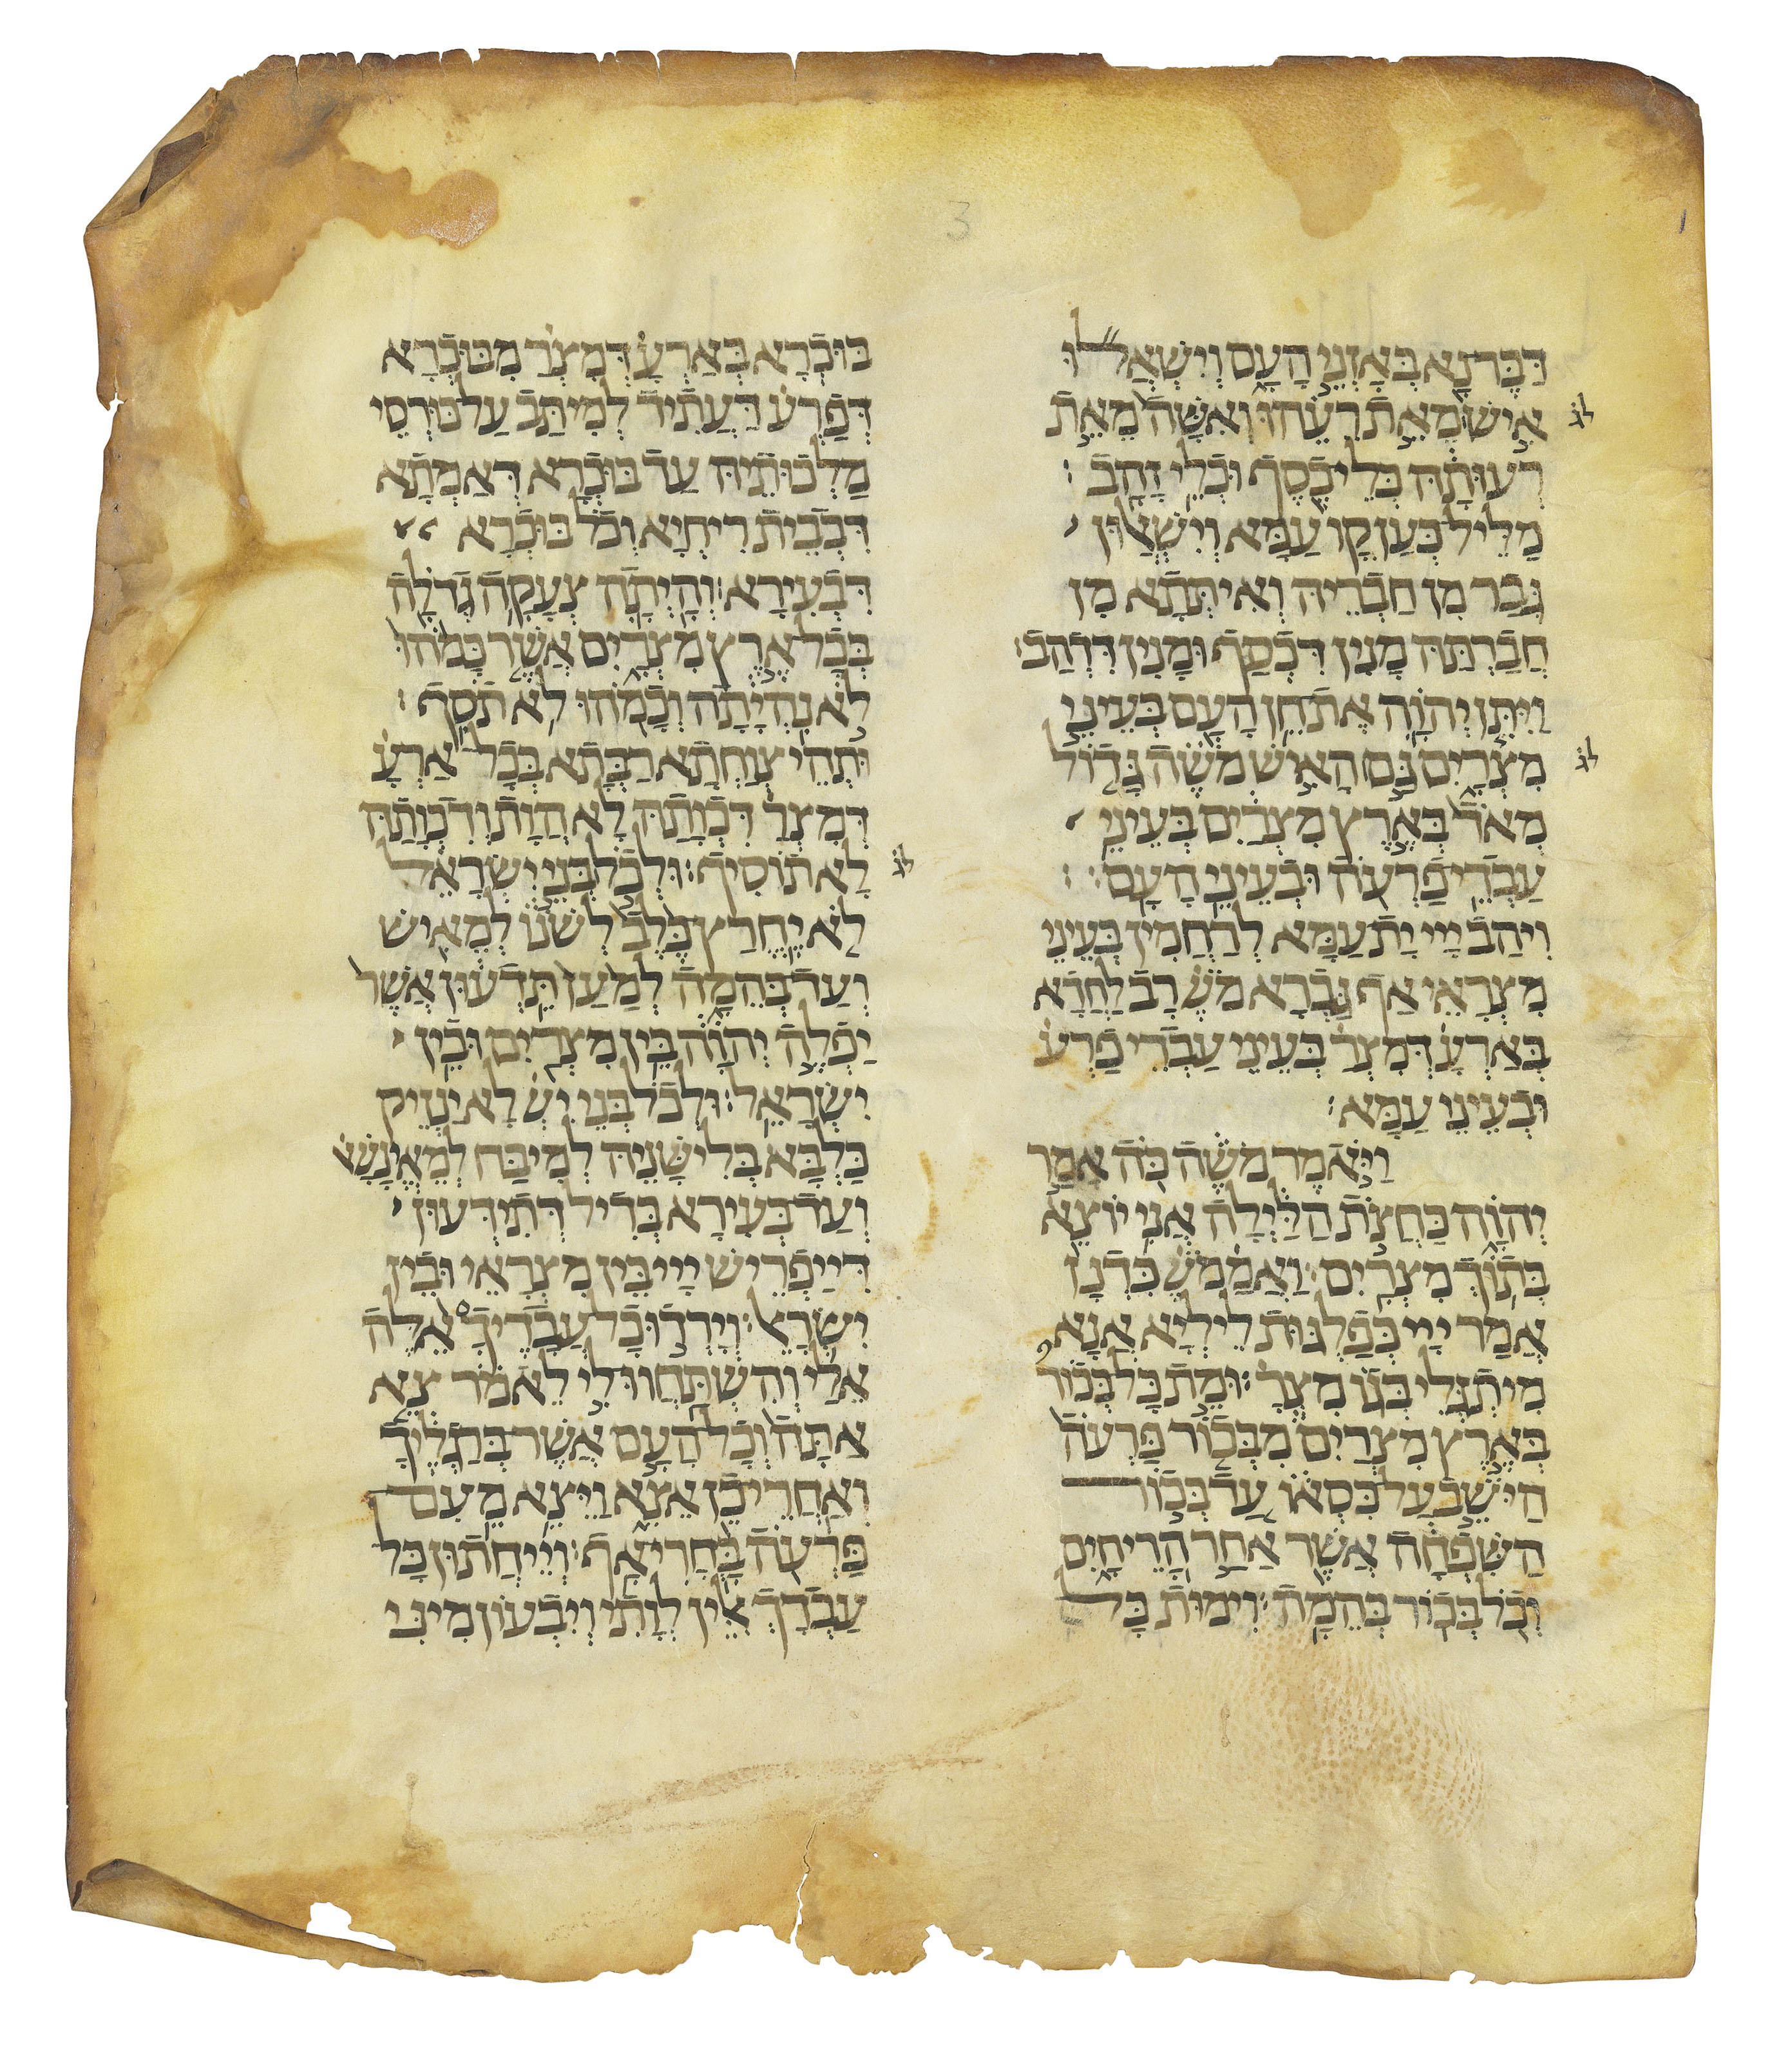 3
דַּבֶּר נָא בְּאָזְנֵי הָעָם וְיִשְׁאֲלוּ
אִישׁ מֵאֵת רֵעֵהוּ וְאִשָּׁה מֵאֵת
רְעוּתָהּ כְּלֵי כֶסֶף וּכְלֵי זָהָב׃
מַלֵּיל כְּעַן קֳדָם עַמָּא וְיִשְׁאֲלוּן
גְּבַר מִן חַבְרֵיהּ וְאִיתְּתָא מִן
חֲבֶרְתַּהּ מָנִין דִּכְסַף וּמָנִין דִּדְהַב׃
וַיִּתֵּן יְהוָה אֶת חֵן הָעָם בְּעֵינֵי
מִצְרָיִם גַּם הָאִישׁ מֹשֶׁה גָּדוֹל
מְאֹד בְּאֶרֶץ מִצְרַיִם בְּעֵינֵי
עַבְדֵי פַרְעֹה וּבְעֵינֵי הָעָם׃
וִיהַב יְיָ יָת עַמָּא לְרַחֲמִין בְּעֵינֵי
מִצְרָאֵי אַף גֻּבְרָא מֹשֶׁ רַב לַחְדָא
בְּאַרְעָ דְמִצְרַ בְּעֵינֵי עַבְדֵי פַרְעֹ
וּבְעֵינֵי עַמָּא׃
וַיֹּאמֶר מֹשֶׁה כֹּה אָמַר
יְהוָה כַּחֲצֹת הַלַּיְלָה אֲנִי יוֹצֵא
בְּתוֹךְ מִצְרָיִם׃ וַאֲמַ מֹשֶׁ כִּדְנָן
אֲמַר יְיָ כְּפַלְגוּת לֵילְיָא אֲנָא
מִתְגְּלִי בְּגוֹ מִצְרָ׃ וּמֵת כָּל בְּכוֹר
בְּאֶרֶץ מִצְרַיִם מִבְּכוֹר פַּרְעֹה
הַיֹּשֵׁב עַל כִּסְאוֹ עַד בְּכוֹר
הַשִּׁפְחָה אֲשֶׁר אַחַר הָרֵיחָיִם
וְכֹל בְּכוֹר בְּהֵמָה׃ וִימוּת כָּל
בּוּכְרָא בְּאַרְעָ דְּמִצְרַ מִבּוּכְרָא
דְּפַרְעֹ דַּעֲתִיד לְמִיתַּב עַל כּוּרְסֵי
מַלְכוּתֵיהּ עַד בּוּכְרָא דְּאַמְתָא
דִּבְבֵית רִיחְיָא וְכָל בּוּכְרָא
דִּבְעִירָא׃ וְהָיְתָה צְעָקָה גְדֹלָה
בְּכָל אֶרֶץ מִצְרָיִם אֲשֶׁר כָּמֹהוּ
לֹא נִהְיָתָה וְכָמֹהוּ לֹא תֹסִף׃
וּתְהֵי צְוַחְתָּא רַבְּתָא בְּכָל אַרְעָ
דְמִצְרַ דִּכְוָתַהּ לָא הֲוָת וְדִכְוָתַהּ
לָא תוֹסִיף׃ וּלְכֹל בְּנֵי יִשְׂרָאֵל
לֹא יֶחֱרַץ כֶּלֶב לְשֹׁנוֹ לְמֵאִישׁ
וְעַד בְּהֵמָה לְמַעַן תֵּדְעוּן אֲשֶׁר
יַפְלֶה יְהוָה בֵּין מִצְרַיִם וּבֵין
יִשְׂרָאֵל׃ וּלְכֹל בְּנֵי יִשְׂ לָא יַנְזֵיק
כַּלְבָּא בְּלִישָׁנֵיהּ לְמִיבַּח לְמֵאֱנָשָׁא
וְעַד בְּעִירָא בְּדִיל דְּתִידְּעוּן
דְּיַפְרֵישׁ יְיָ בֵּין מִצְרָאֵי וּבֵין
יִשְׂרָאֵל׃ וְיָרְדוּ כָל עֲבָדֶיךָ אֵלֶּה
אֵלַי וְהִשְׁתַּחֲווּ לִי לֵאמֹר צֵא
אַתָּה וְכָל הָעָם אֲשֶׁר בְּרַגְלֶיךָ
וְאַחֲרֵי כֵן אֵצֵא וַיֵּצֵא מֵעִם
פַּרְעֹה בָּחֳרִי אָף׃ וְיֵיחֲתוּן כָּל
עַבְדָךְ אִלֵּין לְוָתִי וְיִבְעוֹן מִינִּי